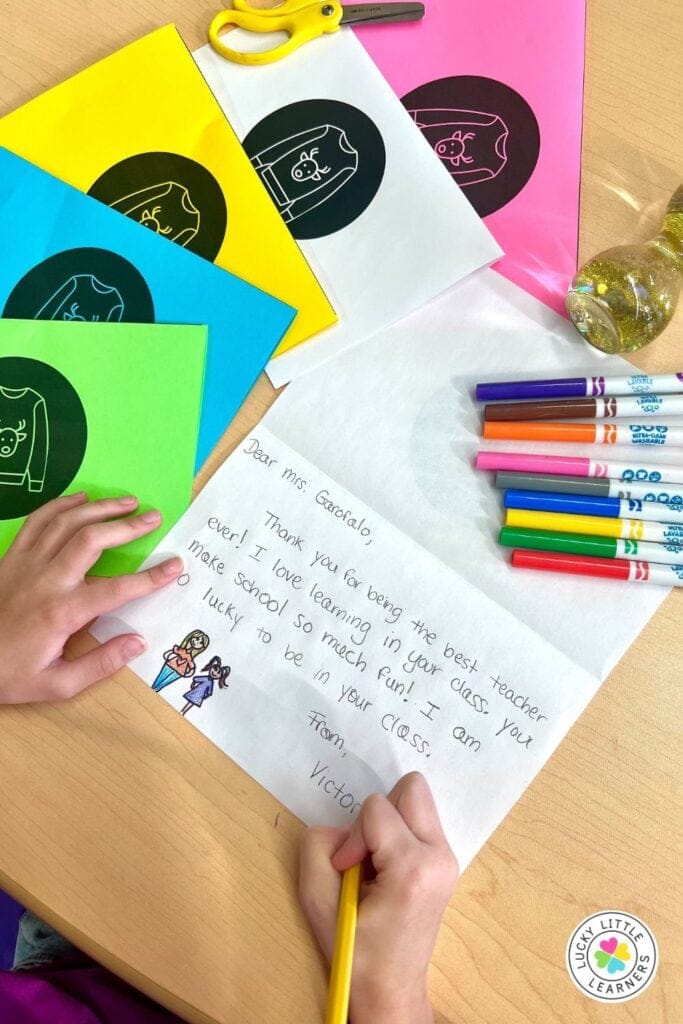 Dear mrs. Garofalo,
Thank you for being the best teacher
ever! I love learning in your class. you
make school so much fun! I am
lucky to be in your class.
From,
Victor
ULTRA-CLEAN
WASHABLE
LUCKY LITTLE
LEARNERS